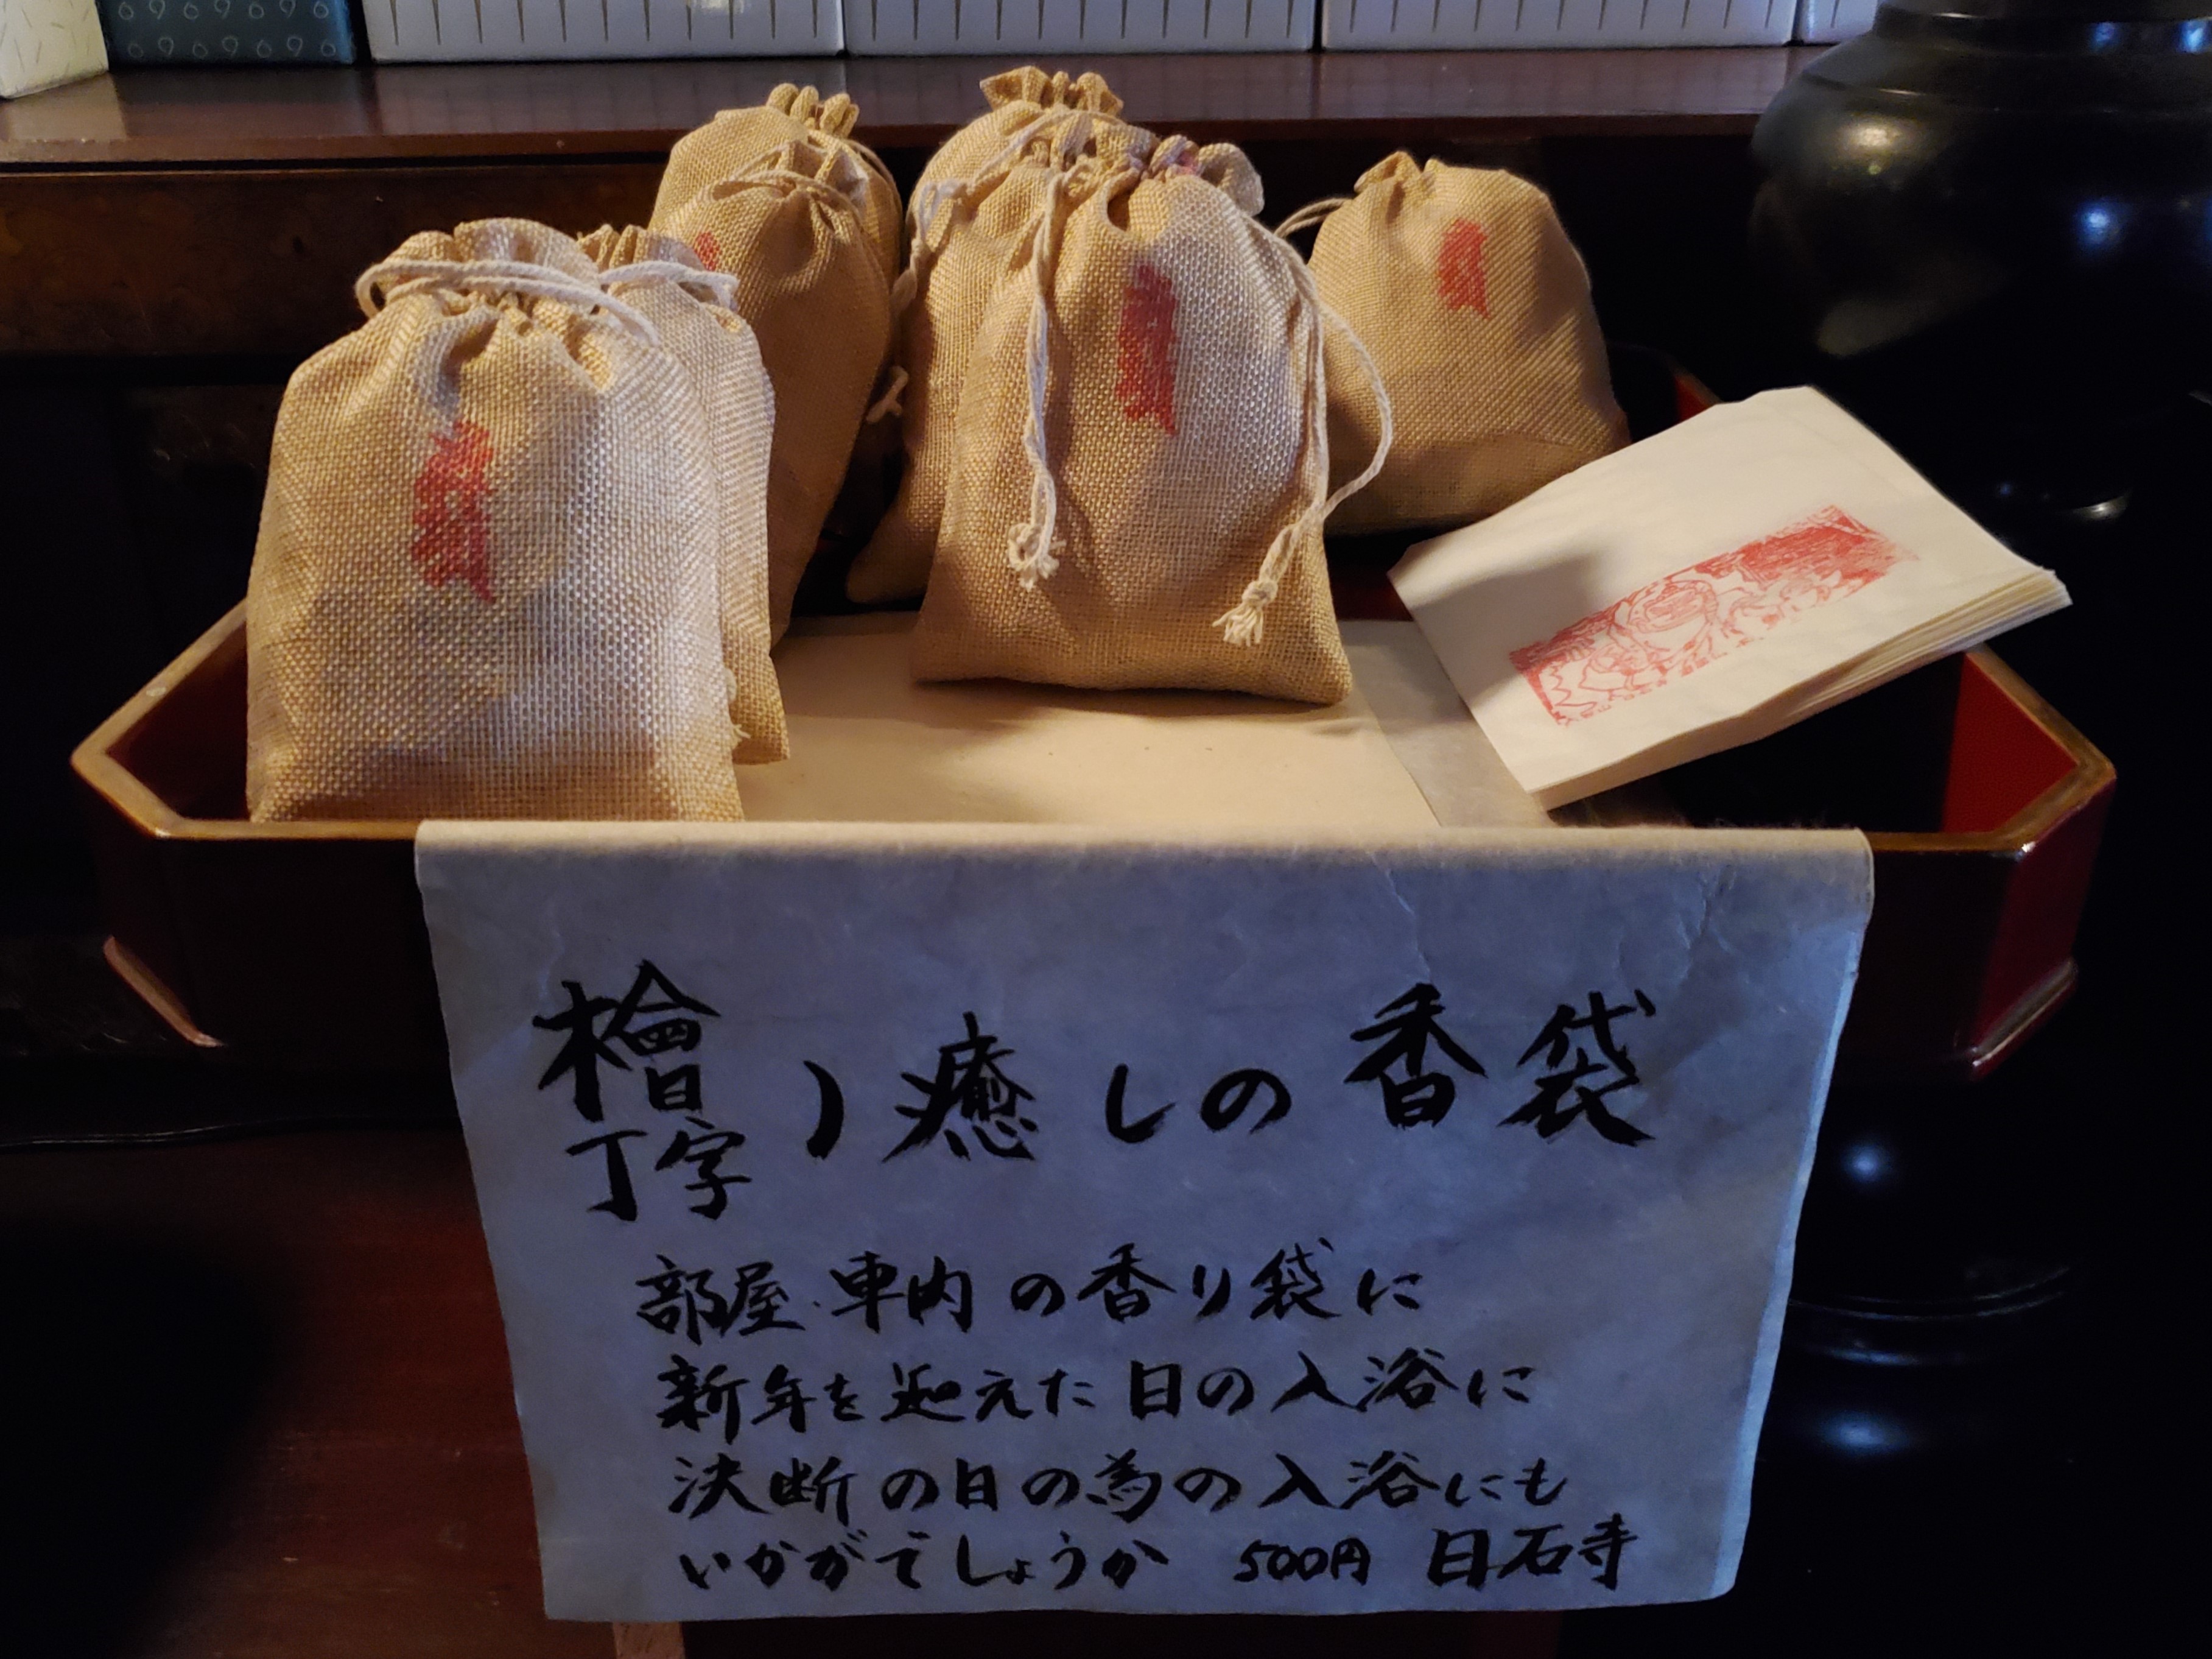 檜
丁字
癒しの香袋
部屋・車内の香り袋に
新年を迎えた日の入浴に
決断の日の為の入浴にも
いかがでしょうか 500円 白石寺